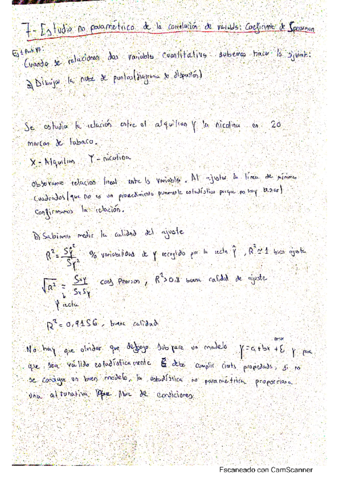 7- Estudio no paramétrico de la correlación de variable: Coeficiente de Spearman
Cuando se relacionan dos variables cuantitativas sabemos hacer lo siguiente:
a) Dibujar la nube de puntos (diagrama de dispersión)
Se estudia la relación entre el alquitran y la nicotina en 20
marcas de tabaco.
X- Alquitran Y- nicotina
Observamos relacion lineal entre las variables. Al ajustar la línea de mínimo
cuadrados (que no es un procedimiento puramente estadístico porque no hay)
Confirmamos la relación.
b) Sabemos medir la calidad del ajuste
% variabilidad de Y recogido por la recta Ŷ, R² ≃ 1 buen ajuste
Pearson, buena calidad de ajuste
R² = 0,9156, buena calidad
No hay que olvidar que debajo subyace un modelo Y = a + bx + E y para
que sea válido estadísticamente E debe cumplir ciertas propiedades, si no
se consigue un buen modelo, la estadística no paramétrica proporciona
una alternativa libre de condiciones.
Escaneado con CamScanner